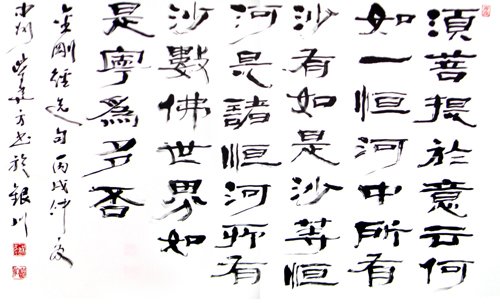 須菩提於意云何
如一恒河中所有
沙有如是沙等恒
河是諸恒河所有
沙數佛世界如
是寧為多否
金剛經选句丙戌仲夏
柴建方书於銀川